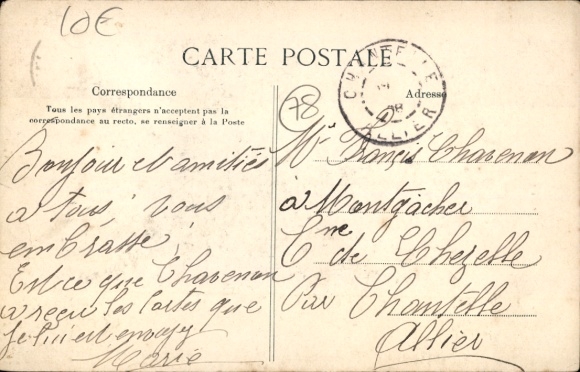 10€
CARTE POSTALE
CHANTELLE
ALLIER
08
Correspondance
Tous les pays étrangers n'acceptent pas la
correspondance au recto, se renseigner à la Poste
78
Adresse
Bonjour et amitiés
a tous vous
embrasse
Est ce que Chavenon
a reçu les cartes que
je lui est envoyy
Marie
Mr Francis Chavenon
à Montgacher
Cne de Chezelle
Par Chantelle
Allier